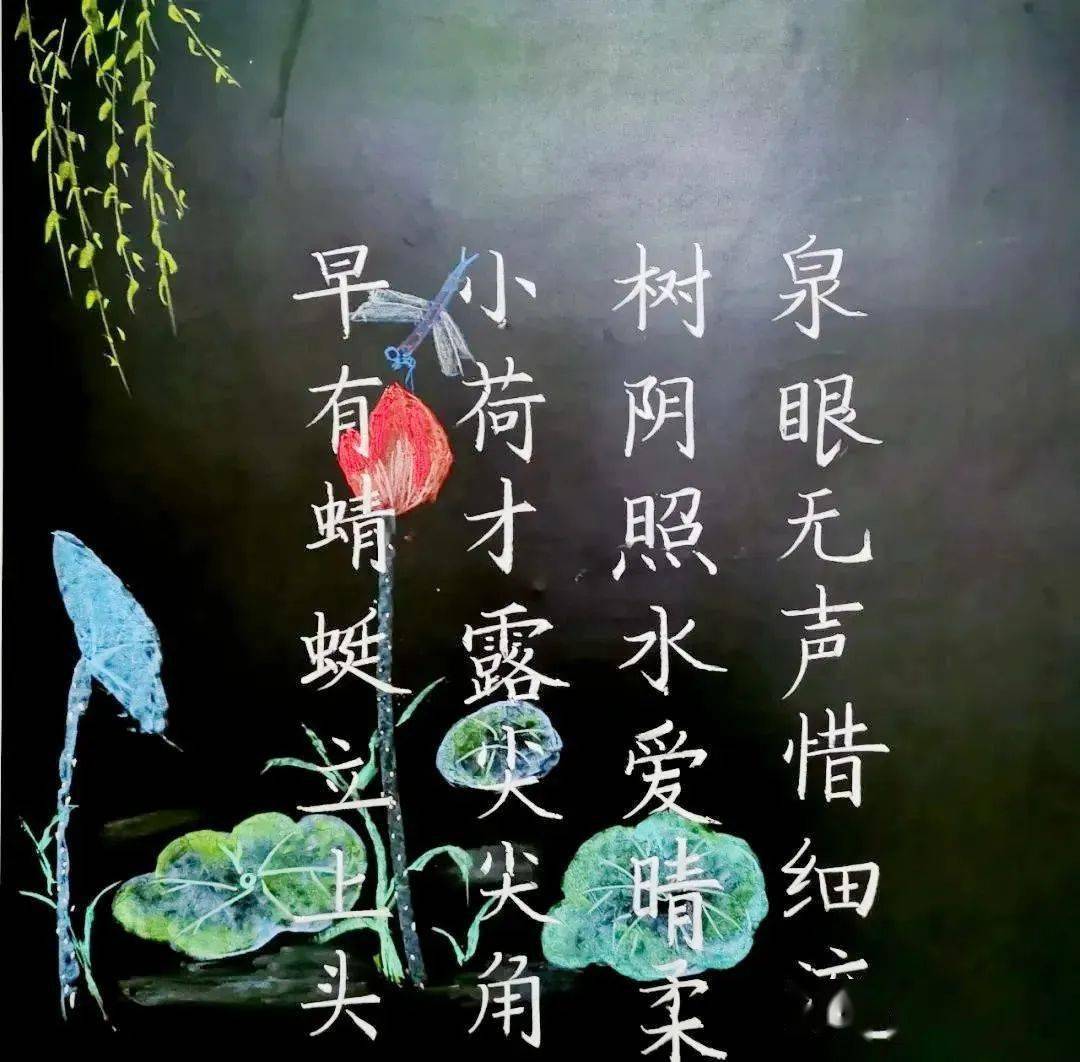 泉眼无声惜细
树阴照水爱晴柔
小荷才露尖尖角
早有蜻蜓立上头